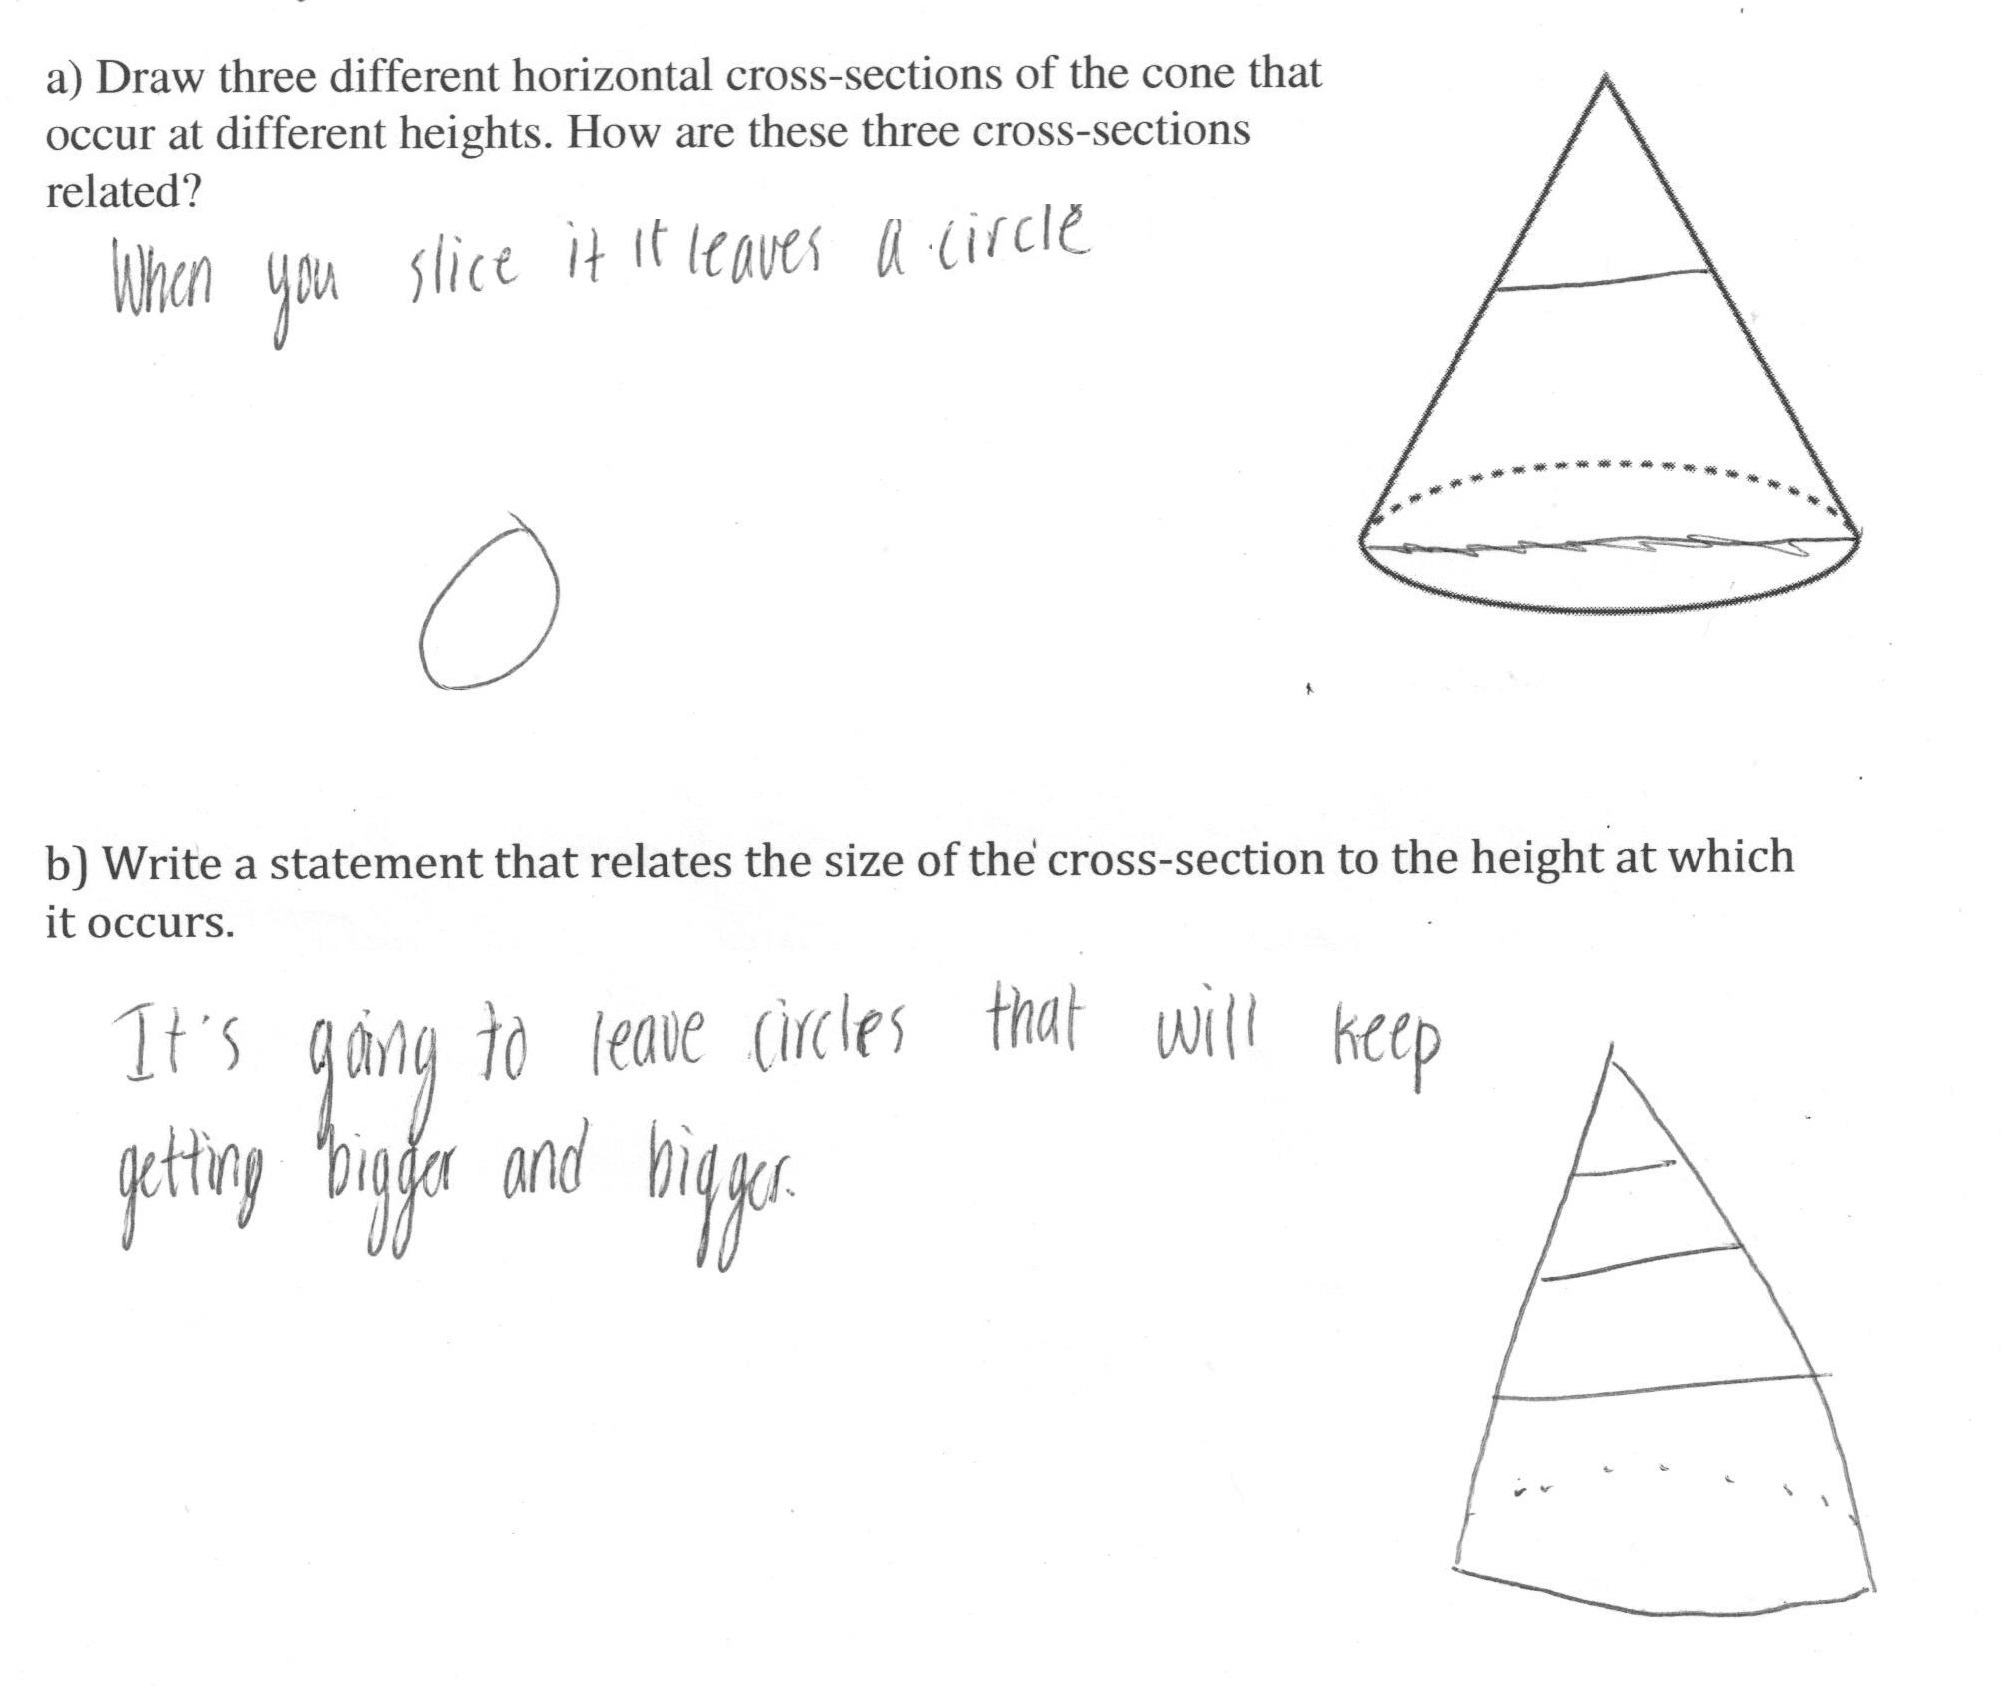 a) Draw three different horizontal cross-sections of the cone that
occur at different heights. How are these three cross-sections
related?
When you slice it it leaves a circle
b) Write a statement that relates the size of the cross-section to the height at which
it occurs.
It's going to leave circles that will keep
getting bigger and bigger.